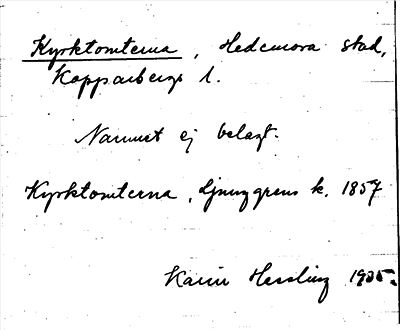 Kyrktomterna, Hedemora stad,
Kopparbergs l.
Namnet ej belagt.
Kyrktomterna, Ljunggrens k. 1857
Karin Hessling 1935.